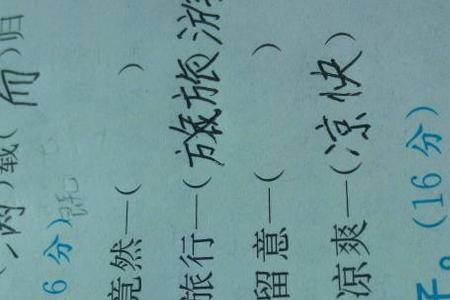 (满)载(而)归
6分)
竟然—(  )
旅行—(旅旅游
留意—(  )
凉爽—(凉快)
。(16分)